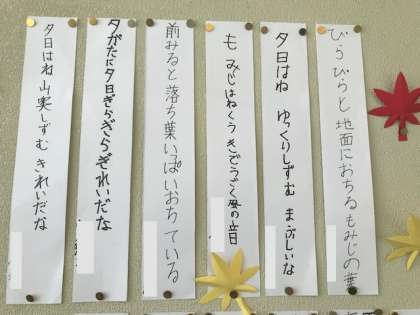 ひらひらと地面におちるもみじの葉
夕日はねゆっくりしずむまぶしいな
もみじはねくうきでうごく風の音
前みると落ち葉いっぱいおちている
夕がたに夕日ぎらぎらきれいだな
夕日はね山に実しずむきれいだな